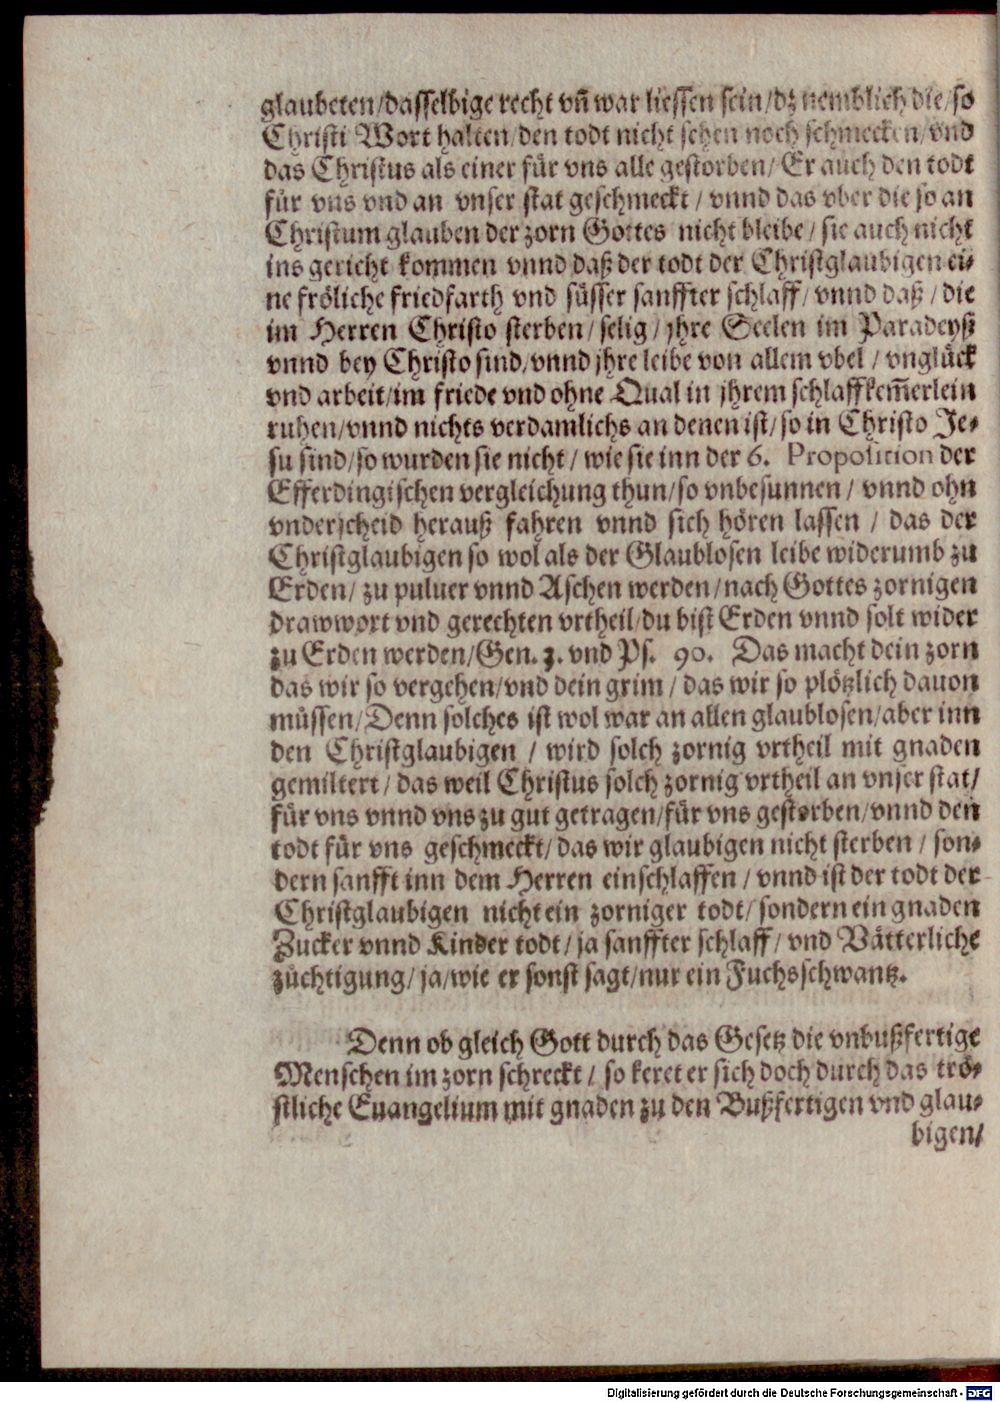 glaubeten/dasselbige recht vn̄ war liessen sein/dz nemblich die/so
Christi Wort halten/den todt nicht sehen noch schmecken/vnd
das Christus als einer für vns alle gestorben/ Er auch den todt
für vns vnd an vnser stat geschmeckt / vnnd das vber die so an
Christum glauben der zorn Gottes nicht bleibe / sie auch nicht
ins gericht kommen vnnd daß der todt der Christglaubigen ei⸗
ne fröliche friedfarth vnd süsser sanffter schlaff/ vnnd daß / die
im Herren Christo sterben/ selig / jhre Seelen im Paradeyß
vnnd bey Christo sind/vnnd jhre leibe von allem vbel / vnglück
vnd arbeit/im friede vnd ohne Qual in jhrem schlaffkem̄erlein
ruhen/vnnd nichts verdamlichs an denen ist/ so in Christo Je⸗
su sind/so wurden sie nicht / wie sie inn der 6. Proposition der
Efferdingischen vergleichung thun/so vnbesunnen / vnnd ohn
vnderscheid herauß fahren vnnd sich hören lassen / das der
Christglaubigen so wol als der Glaublosen leibe widerumb zu
Erden/ zu puluer vnnd Aschen werden/nach Gottes zornigen
drawwort vnd gerechten vrtheil/du bist Erden vnnd solt wider
zu Erden werden/Gen. 3. vnd Ps. 90. Das macht dein zorn
das wir so vergehen/vnd dein grim / das wir so plötzlich dauon
müssen/Denn solches ist wol war an allen glaublosen/aber inn
den Christglaubigen / wird solch zornig vrtheil mit gnaden
gemiltert / das weil Christus solch zornig vrtheil an vnser stat/
für vns vnnd vns zu gut getragen/für vns gestorben/vnnd den
todt für vns geschmeckt/ das wir glaubigen nicht sterben / son⸗
dern sanfft inn dem Herren einschlaffen / vnnd ist der todt der
Christglaubigen nicht ein zorniger todt/ sondern ein gnaden
Zucker vnnd Kinder todt / ja sanffter schlaff / vnd Vätterliche
züchtigung/ ja/wie er sonst sagt/nur ein Fuchsschwantz.
Denn ob gleich Gott durch das Gesetz die vnbußfertige
Menschen im zorn schreckt / so keret er sich doch durch das trö⸗
stliche Euangelium mit gnaden zu den Bußfertigen vnd glau⸗
bigen/
Digitalisierung gefördert durch die Deutsche Forschungsgemeinschaft - DFG